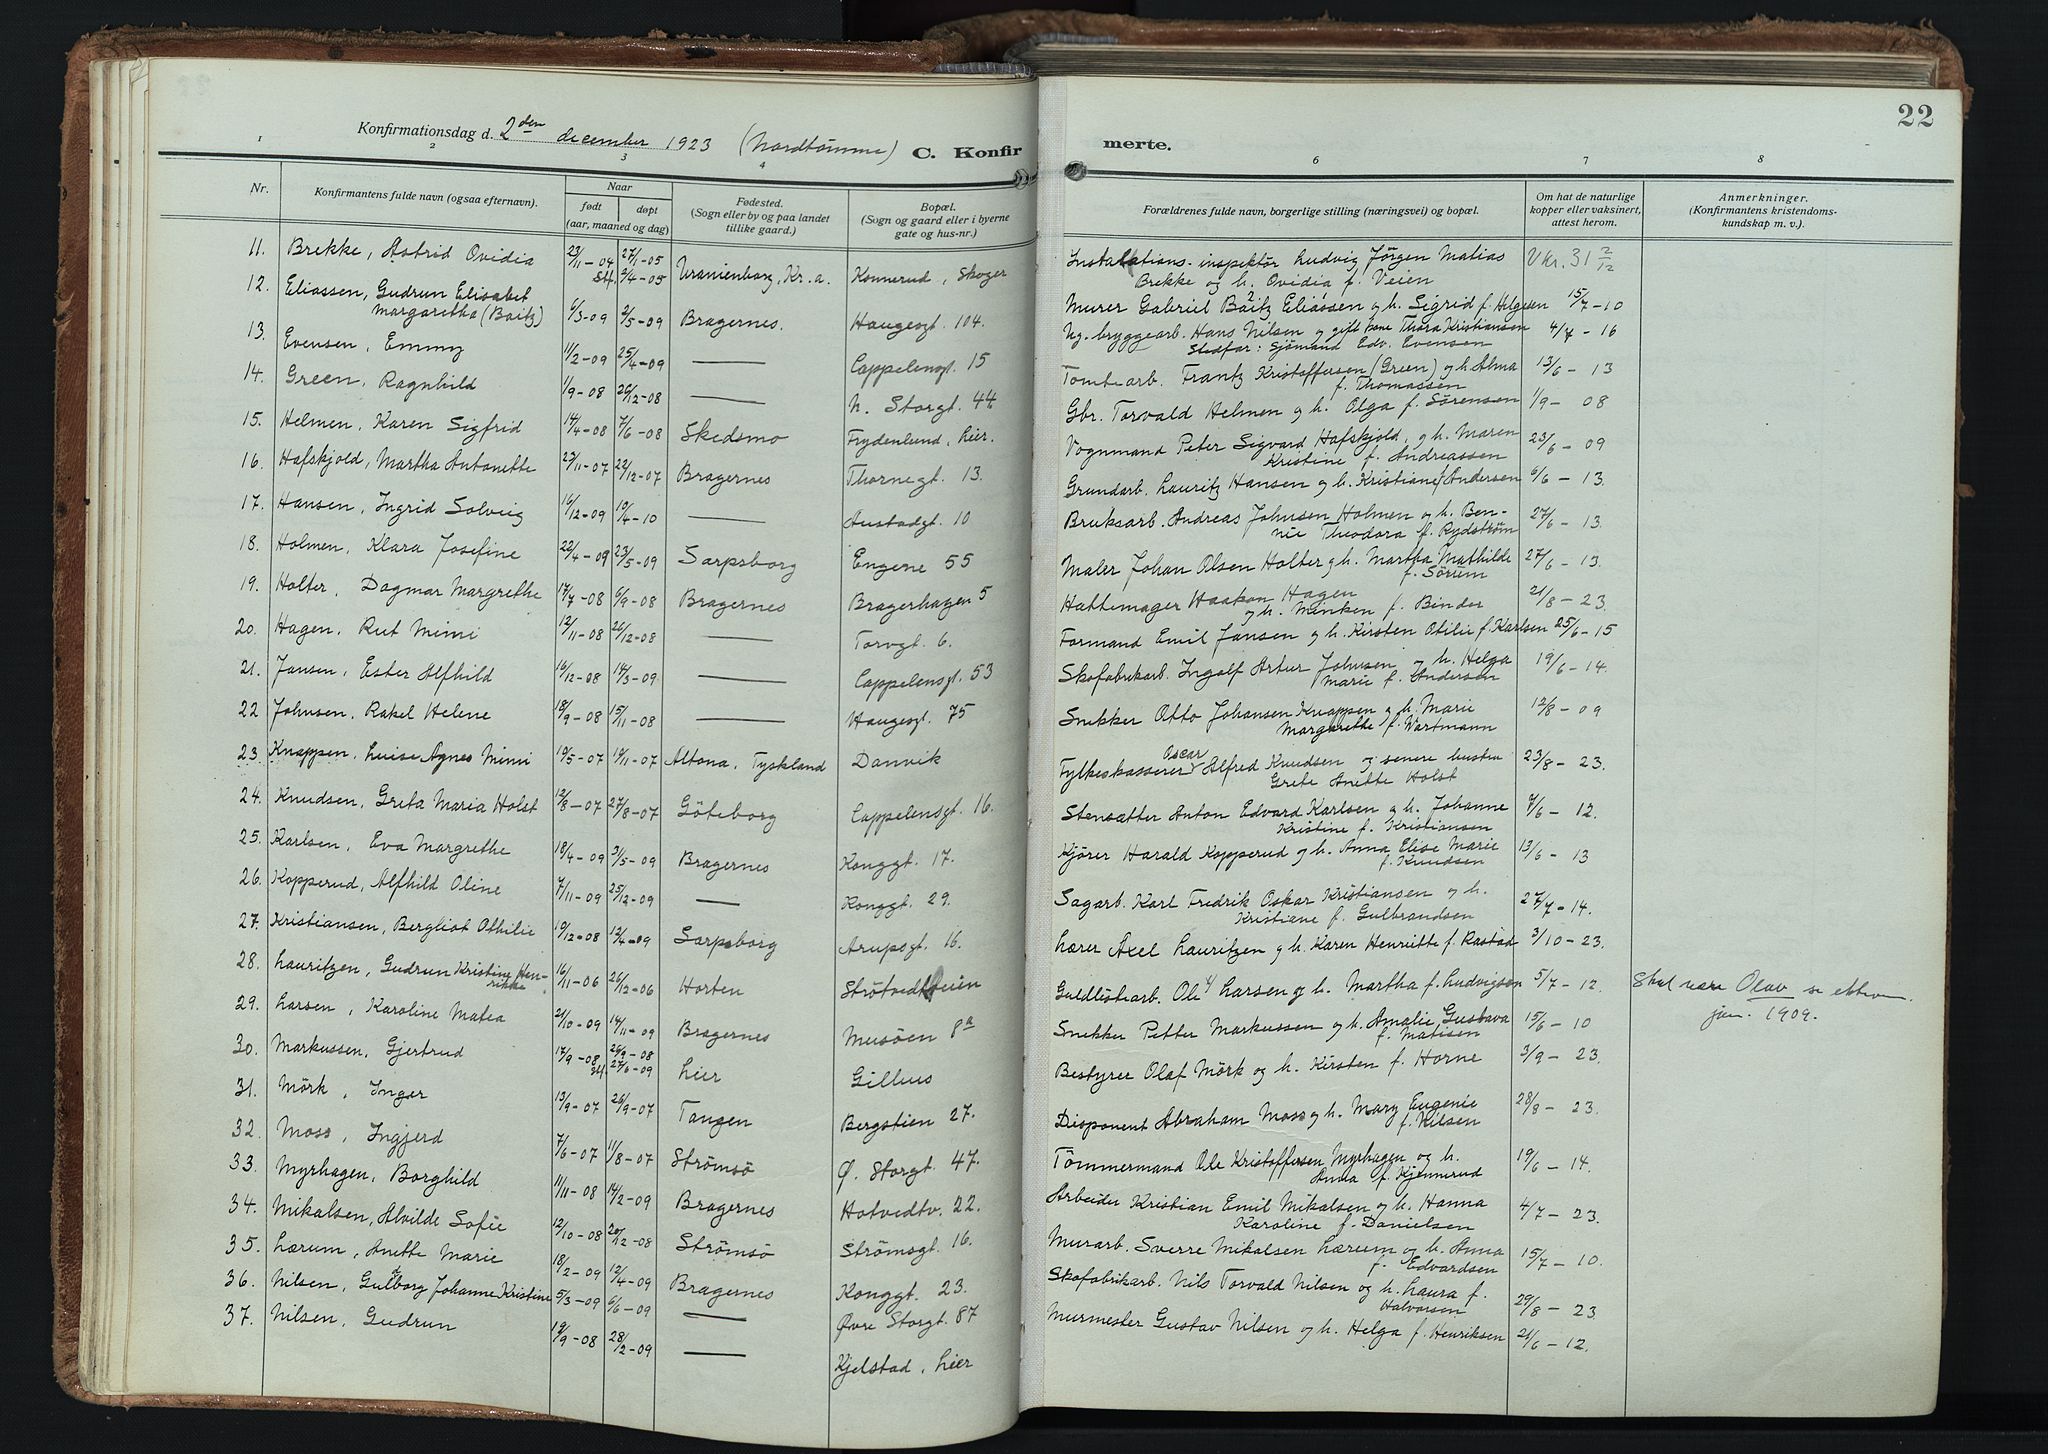 22
Konfirmationsdag d. 2den december 1923 (Nordtömme) C. Konfir
merte.
1 2 3 4 6 7 8
Nr.
Konfirmantens fulde navn (ogsaa efternavn).
Naar
født
døpt
(aar, maaned og dag)
Fødested.
(Sogn eller by og paa landet
tillike gaard.)
Bopæl.
(Sogn og gaard eller i byerne
gate og hus-nr.)
Forældrenes fulde navn, borgerlige stilling (næringsvei) og bopæl.
Om hat de naturlige
kopper eller vaksinert,
attest herom.
Anmerkninger.
(Konfirmantens kristendoms-
kundskap m. v.).
11. Brekke, Astrid Ovidia 23/11-04 27/1-05 Uranienborg, Kr.a. Konnerud, Skoger
Stf. 2/4-05
12. Eliassen, Gudrun Elisabet
Margaretha (Baitz) 6/3-09 2/5-09 Bragernes. Haugesgt. 104.
13. Evensen, Emmy 11/2-09 25/4-09 — Cappelensgt. 15
14. Green, Ragnhild 1/9-08 26/12-08 — N. Storgt. 44
15. Helmen, Karen Sigfrid 14/4-08 7/6-08 Skedsmo Frydenlund, Lier.
16. Hafskjold, Martha Antonette 23/11-07 22/12-07 Bragernes Thornegt. 13.
17. Hansen, Ingrid Solveig 16/12-09 10/4-10 — Austadgt. 10
18. Holmen, Klara Josefine 22/4-09 23/5-09 Sarpsborg Engene 55
19. Holter, Dagmar Margrethe 17/7-08 6/9-08 Bragernes Bragerhagen 5
20. Hagen, Rut Mimi 12/11-08 26/12-08 — Torvgt. 6.
21. Jansen, Ester Alfhild 16/12-08 14/3-09 — Cappelensgt. 53
22 Johnsen, Rakel Helene 18/9-08 15/11-08 — Haugesgt. 75
23. Knappen, Luise Agnes Mimi 10/5-07 19/11-07 Altona, Tyskland Danvik
24. Knudsen, Greta Maria Holst 12/8-07 27/8-07 Göteborg Cappelensgt. 16.
25. Karlsen, Eva Margrethe 18/4-09 31/5-09 Bragernes Konggt. 17.
26. Kopperud, Alfhild Oline 7/11-09 25/12-09 — Konggt. 29.
27. Kristiansen, Bergliot Othilie 19/12-08 12/4-09 Sarpsborg Arupsgt. 16.
28. Lauritzen, Gudrun Kristine Hen-
rikke 16/11-06 26/12-06 Horten Strötvedtveien
29. Larsen, Karoline Matea 21/10-09 14/11-09 Bragernes Musöen 8a
30. Markussen, Gjertrud 17/9-08 26/9-08 Lier Gilhus
st. 27/6-09
31. Mörk, Inger 13/9-07 26/9-07 Tangen Bergstien 27.
32. Moss, Ingjerd 7/6-07 11/8-07 Strömsö Ø. Storgt. 47.
33. Myrhagen, Borghild 11/11-08 14/2-09 Bragernes Hotvedtv. 22.
34. Mikalsen, Alvilde Sofie 12/10-08 20/12-08 Strömsö Strömsgt. 16.
35. Lærum, Anette Marie 18/2-09 12/4-09 Bragernes Konggt. 23.
36. Nilsen, Gulborg Johanne Kristine 5/3-09 6/6-09 — Øvre Storgt. 87
37. Nilsen, Gudrun 19/9-08 28/2-09 — Kjelstad, Lier
Instalations-inspektör Ludvig Jörgen Matias Vkr. 31 2/12
Brekke og h. Ovidia f. Veien
Murer Gabriel Baitz Eliassen og h. Sigrid f. Helgesen 15/7-10
Ug. bryggearb. Hans Nilsen og gift pane Thora Kristiansen 4/7-16
Stedfar: Sjömand Edv. Evensen
Tomtearb. Frantz Kristoffersen (Green) og h. Alma 13/6-13
f. Thomassen
Gbr. Torvald Helmen og h. Olga f. Sörensen 1/9-08
Vognmand Peter Sigvard Hafskjold, og h. Maren 23/6-09
Kristine f. Andreassen
Grundarb. Lauritz Hansen og h. Kristiane f. Andersen 6/6-13
Bruksarb. Andreas Johnsen Holmen og h. Ben- 27/6-13.
nie Theodora f. Rydström
Maler Johan Olsen Holter og h. Martha Mathilde 27/6-13.
f. Sörum
Hattemager Haakon Hagen 21/8-23.
og h. Minken f. Binder
Formand Emil Jansen og h. Kirsten Otilie f. Karlsen 25/6-15
Skofabrikarb. Ingolf Artur Johnsen og h. Helga 19/6-14.
Marie f. Andersen
Snekker Otto Johansen Knappen og h. Marie 12/8-09
Margarethe f. Wartmann
Fylkeskasserer Oscar Alfred Knudsen og senere hustru 23/8-23.
Grete Anette Holst
Stensætter Anton Edvard Karlsen og h. Johanne 7/6-12.
Kristine f. Kristiansen
Kjörer Harald Kopperud og h. Anna Elise Marie 13/6-13
f. Knudsen
Sagarb. Karl Fredrik Oskar Kristiansen og h. 27/7-14.
Kristiane f. Gulbrandsen
Lærer Axel Lauritzen og h. Karen Henriette f. Rastad 3/10-23.
Guldlistearb. Ole Larsen og h. Martha f. Ludvigsen 5/7-12. Skal være Olav se
jan. 1909.
Snekker Petter Markussen og h. Amalie Gustava 15/6-10
f. Matisen
Bestyrer Olaf Mörk og h. Kirsten f. Horne 3/9-23.
Disponent Abraham Moss og h. Mary Eugenie 28/8-23.
f. Nilsen
Tömmermand Ole Kristoffersen Myrhagen og h. 19/6-14.
Anna f. Kjennerud
Arbeider Kristian Emil Mikalsen og h. Hanna 4/7-23.
Karoline f. Danielsen
Murarb. Sverre Mikalsen Lærum og h. Anna 15/7-10.
f. Edvardsen
Skofabrikarb. Nils Torvald Nilsen og h. Laura f. 29/8-23
Halvorsen
Murmester Gustav Nilsen og h. Helga f. Henriksen 21/6-12.